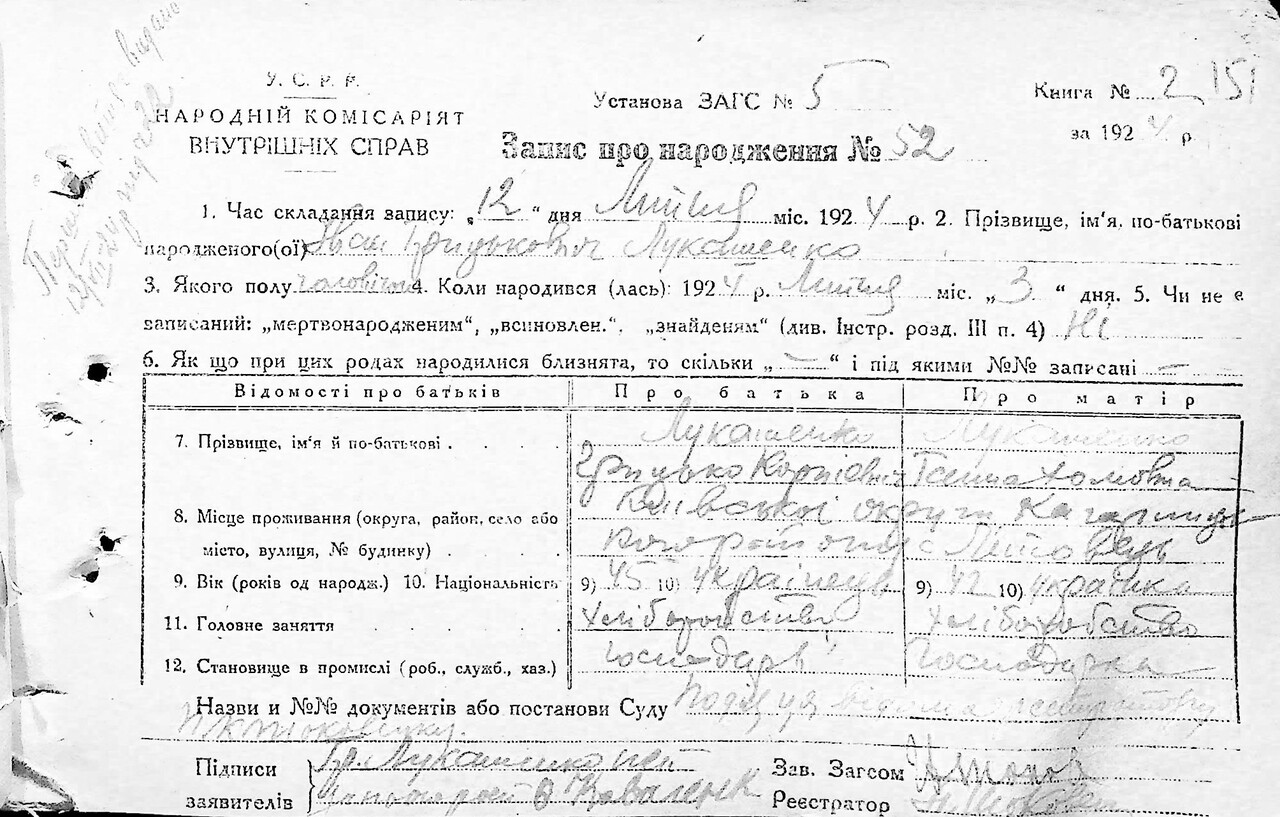 У. С. Р. Р.
НАРОДНІЙ КОМІСАРІЯТ
ВНУТРІШНІХ СПРАВ
Установа ЗАГС № 5
Книга № 2 151
за 1924 р.
Запис про народження № 52
1. Час складання запису: „12“ дня Липня міс. 1924 р. 2. Прізвище, ім‘я, по-батькові
народженого(ої) Іван Грицькович Лукашенко
3. Якого полу чоловічої 4. Коли народився (лась): 1924 р. Липня міс. „3“ дня. 5. Чи не є
записаний: „мертвонародженим“, „всиновлен.“. „знайденям“ (див. Інстр. розд. III п. 4) Ні
6. Як що при цих родах народилися близнята, то скільки „—“ і під якими №№ записані —
Відомості про батьків Про батька Про матір
7. Прізвище, ім‘я й по-батькові . . . . Лукашенко Лукашенко
Грицько Корнієвич Ганна Хомовна
8. Місце проживання (округа, район, село або Київської округи Кагарлицьк
місто, вулиця, № будинку) . . . .
9. Вік (років од народж.) 10. Національність 9) 45 10) Українець 9) 42 10) Українка
11. Головне заняття . . . . . Хліборобство Хліборобство
12. Становище в промислі (роб., служб., хаз.) Господарь Господарка
Назви и №№ документів або постанови Суду
Підписи Гр. Лукашенко
заявителів Коваленк
Зав. Загсом
Реєстратор